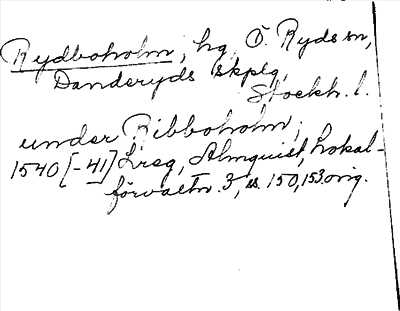 Rydboholm, hg, Ö. Ryds sn,
Danderyds skplg,
Stockh. l.
under Ribboholm,
1540 [-41] Lreg, Almquist, Lokal-
förvaltn. 3, s. 150, 153 orig.